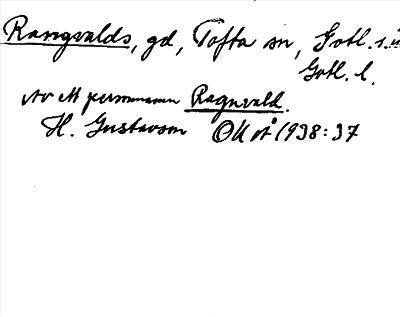 Rangvalds, gd, Tofta sn, Gotl. s.
Gotl. l.
Av ett personnamn Ragnvald.
H. Gustavson OKÅ 1938:37